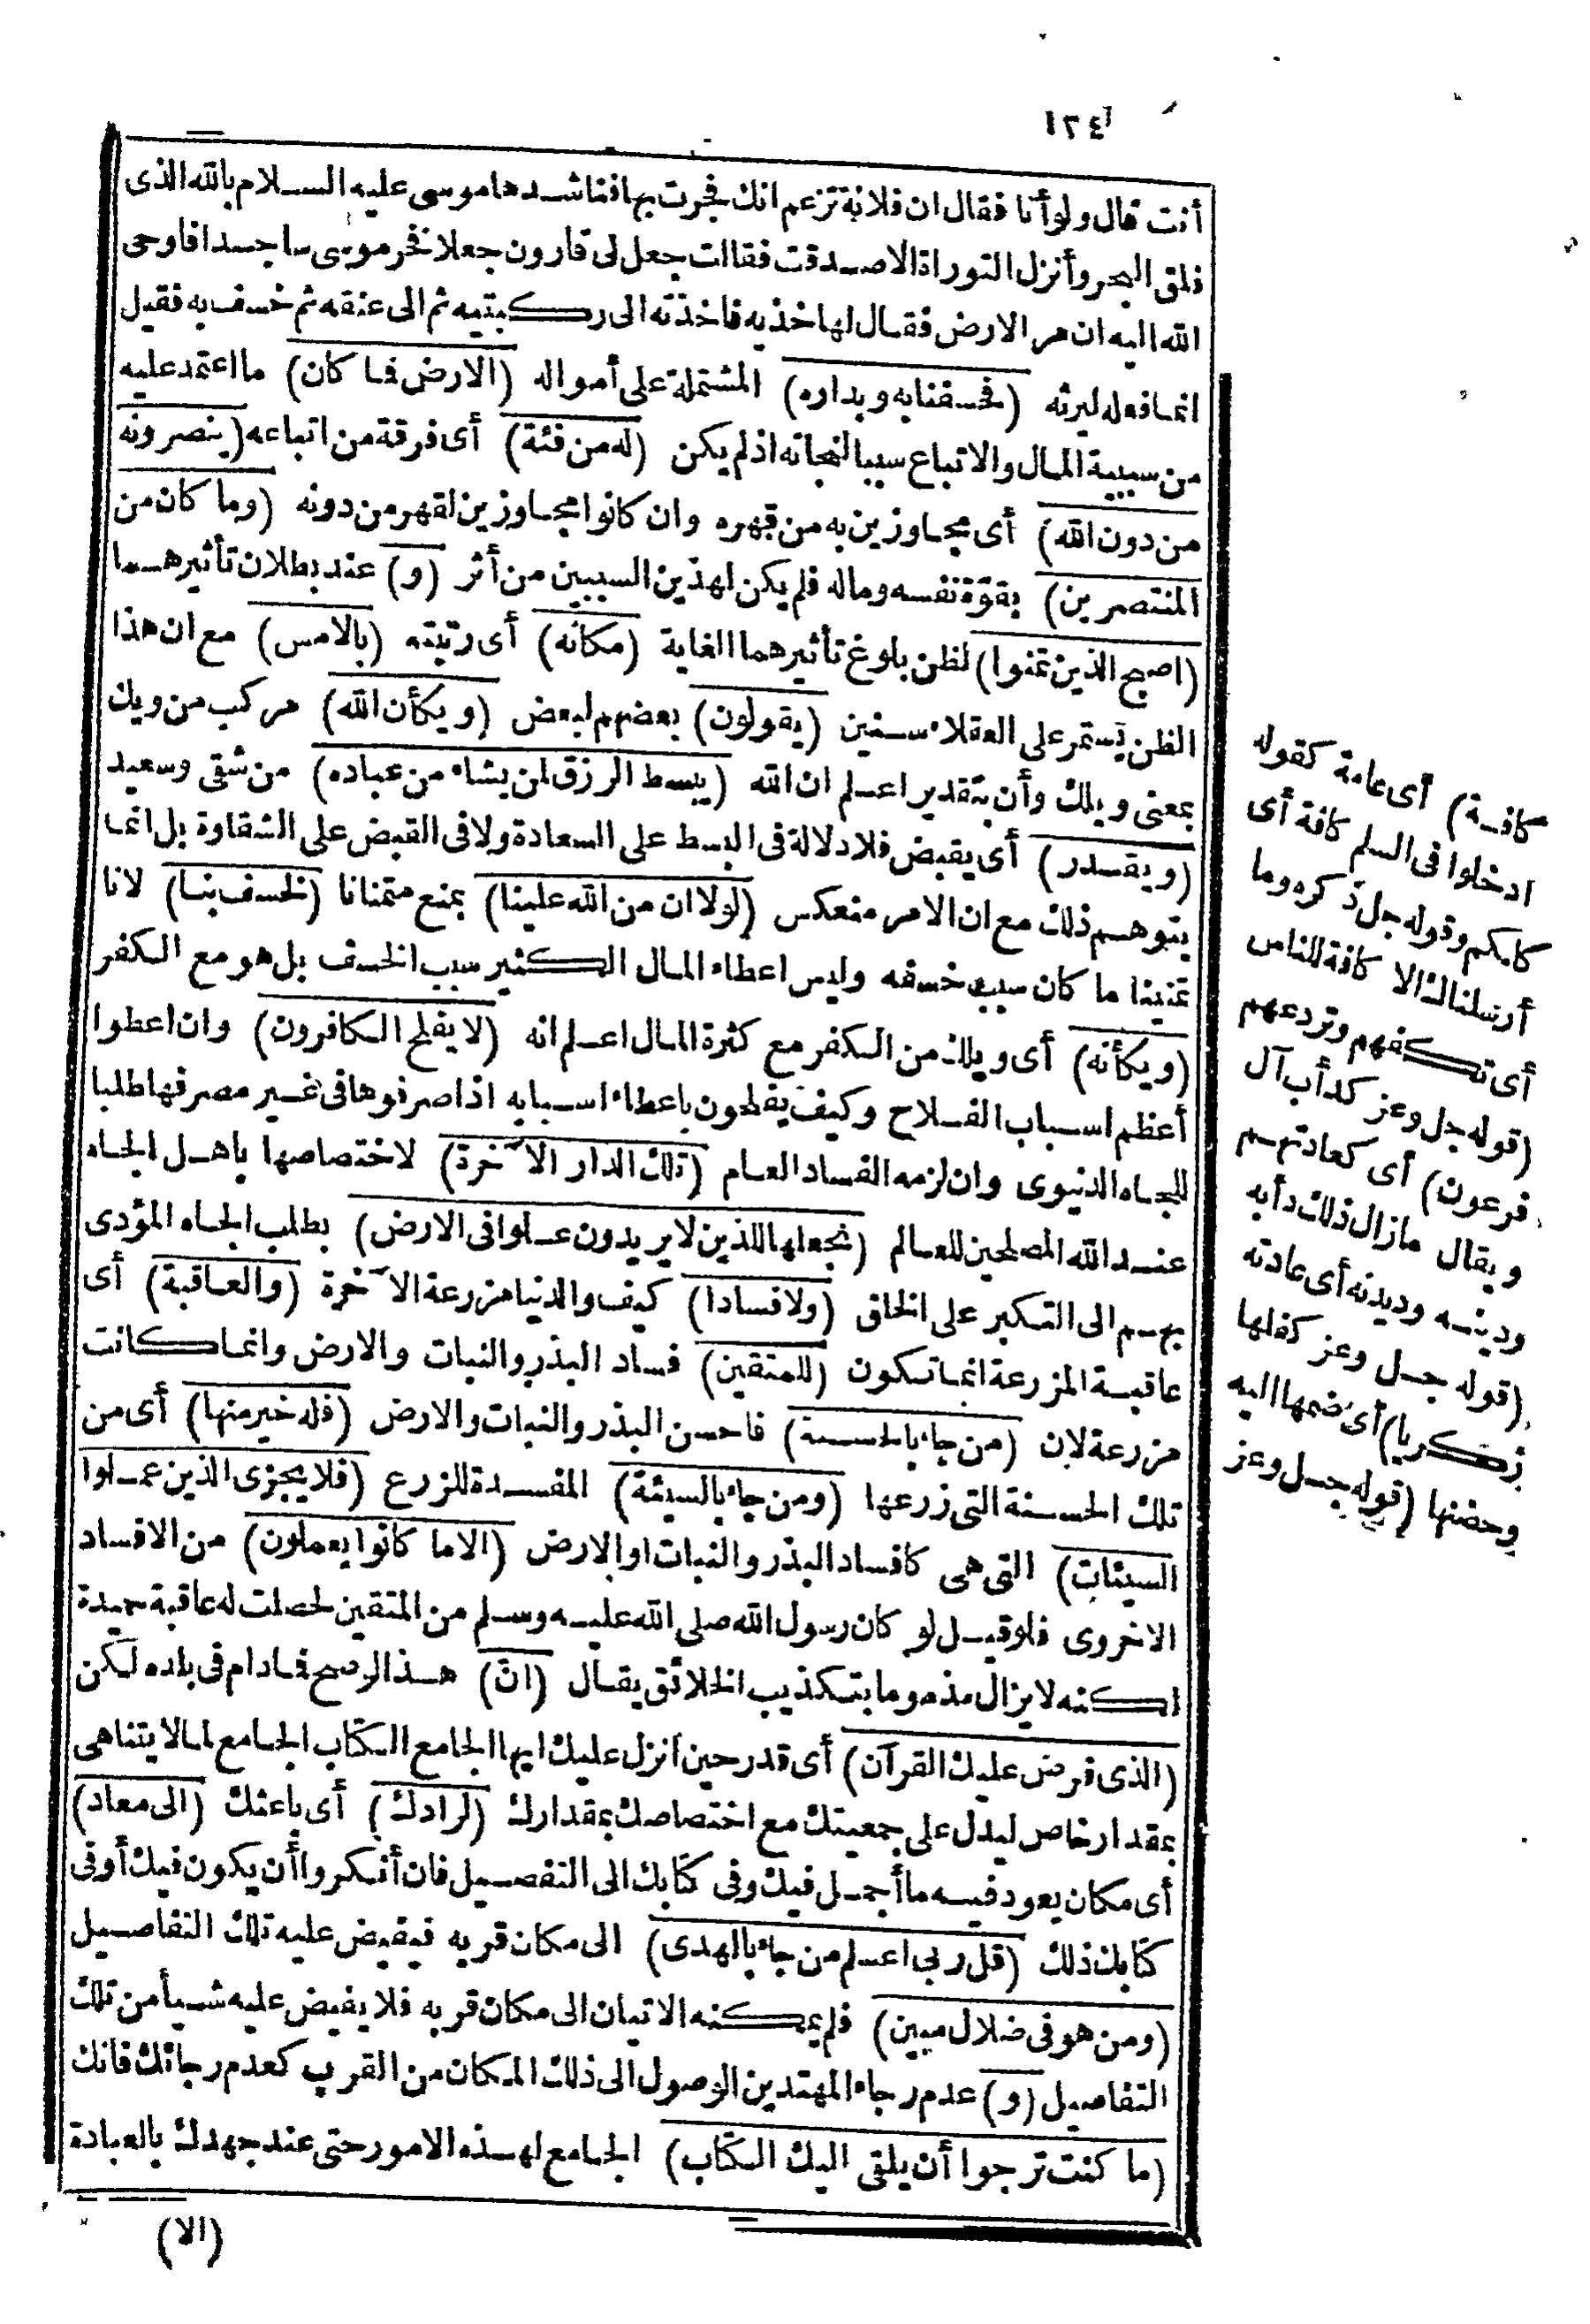 ١٣٤
أنت قال ولو أنا فقال ان فلانة تزعم انك فجرت بها فناشدها موسى عليه السلام بالله الذى
فلق البحر وأنزل التوراة الا صدقت فقالت جعل لى قارون جعلا فخر موسى ساجدا فاوحى
الله اليه ان مر الارض فقال لها خذيه فاخذته الى ركبتيه ثم الى عنقه ثم خسف به فقيل
انما فعله ليرثه (فخسفنا به وبداره) المشتملة على أمواله (الارض فما كان) ما اعتمد عليه
من سببية المال والاتباع سببا لنجاته اذ لم يكن (له من فئة) أى فرقة من اتباعه (ينصرونه
من دون الله) أى مجاوزين به من قهره وان كانوا مجاوزين لقهر من دونه (وما كان من
المنتصرين) بقوة نفسه وماله فلم يكن لهذين السببين من أثر (و) عند بطلان تأثيرهما
(اصبح الذين تمنوا) لظن بلوغ تأثيرهما الغاية (مكانه) أى رتبته (بالامس) مع ان هذا
الظن يستمر على العقلاء سنين (يقولون) بعضهم لبعض (ويكأن الله) مركب من ويك
بمعنى ويلك وأن بتقدير اعلم ان الله (يبسط الرزق لمن يشاء من عباده) من شقى وسعيد
(ويقدر) أى يقبض فلا دلالة فى البسط على السعادة ولا فى القبض على الشقاوة بل انما
يتوهم ذلك مع ان الامر منعكس (لولا ان من الله علينا) بمنع متمنانا (لخسف بنا) لانا
تمنينا ما كان سبب خسفه وليس اعطاء المال الكثير سبب الخسف بل هو مع الكفر
(ويكأنه) أى ويلك من الكفر مع كثرة المال اعلم انه (لا يفلح الكافرون) وان اعطوا
أعظم اسباب الفلاح وكيف يفلحون باعطاء اسبابه اذا صرفوها فى غير مصرفها طلبا
للجاه الدنيوى وان لزمه الفساد العام (تلك الدار الآخرة) لاختصاصها باهل الجاه
عند الله المصلحين للعالم (نجعلها للذين لا يريدون علوا فى الارض) بطلب الجاه المؤدى
بهم الى التكبر على الخلق (ولا فسادا) كيف والدنيا مزرعة الآخرة (والعاقبة) أى
عاقبة المزرعة انما تكون (للمتقين) فساد البذر والنبات والارض وانما كانت
مزرعة لان (من جاء بالحسنة) فاحسن البذر والنبات والارض (فله خير منها) أى من
تلك الحسنة التى زرعها (ومن جاء بالسيئة) المفسدة للزرع (فلا يجزى الذين عملوا
السيئات) التى هى كافساد البذر والنبات او الارض (الا ما كانوا يعملون) من الافساد
الاخروى فلو قيل لو كان رسول الله صلى الله عليه وسلم من المتقين لحصلت له عاقبة حميدة
لكنه لا يزال مذموما بتكذيب الخلائق يقال (ان) هذا الرصح فما دام فى بلده لكن
(الذى فرض عليك القرآن) أى قدر حين انزل عليك ايها الجامع الكتاب الجامع لما لا يتناهى
بمقدار خاص ليدل على جمعيتك مع اختصاصك بمقدارك (لرادك) أى باعثك (الى معاد)
أى مكان يعود فيه ما أجمل فيك وفى كتابك الى التفصيل فان أنكروا أن يكون فيك أو فى
كتابك ذلك (قل ربى اعلم من جاء بالهدى) الى مكان قربه فيفيض عليه تلك التفاصيل
(ومن هو فى ضلال مبين) فلم يمكنه الاتيان الى مكان قربه فلا يفيض عليه شيأ من تلك
التفاصيل (و) عدم رجاء المهتدين الوصول الى ذلك المكان من القرب كعدم رجائك فانك
(ما كنت ترجوا أن يلقى اليك الكتاب) الجامع لهذه الامور حتى عند جهدك بالعبادة
(الا)
كافة) أى عامة كقوله
ادخلوا فى السلم كافة أى
كلكم وقوله جل ذكره وما
أرسلناك الا كافة للناس
أى تكفهم وتردعهم
(قوله جل وعز كدأب آل
فرعون) أى كعادتهم
ويقال ما زال ذلك دأبه
ودينه وديدنه أى عادته
(قوله جل وعز كفلها
زكريا) أى ضمها اليه
وحضنها (قوله جل وعز